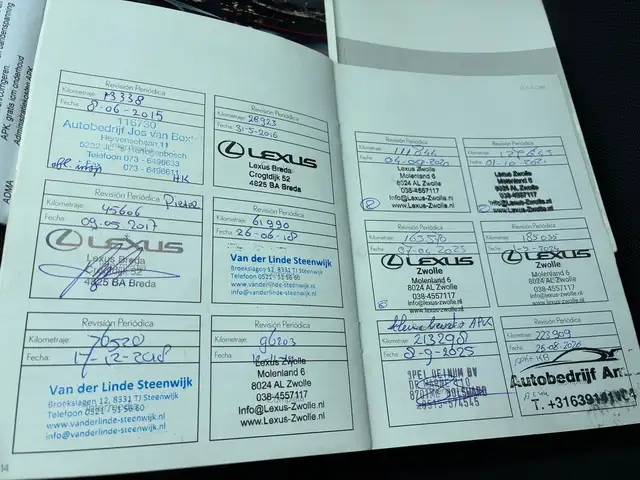 APK, gratis ism onderhoud
ADMA
Revisión Periódica
Kilometraje: 13338
Fecha: 8-06-2015
116730
Autobedrijf Jos van Box
Hervensebaan 11
Telefoon 073 - 6496633
073 - 6496611
HK
Revisión Periódica
Kilometraje: 28923
Fecha: 31-5-2016
LEXUS
Lexus Breda
Crogtdijk 52
4825 BA Breda
Revisión Periódica
Kilometraje: 45606
Fecha: 09-05-2017
LEXUS
Lexus Breda
Crogtdijk 52
4825 BA Breda
Revisión Periódica
Kilometraje: 61990
Fecha: 26-06-18
Van der Linde Steenwijk
Broekslagen 12, 8331 TJ Steenwijk
Telefoon 0521 - 51 56 60
www.vanderlinde-steenwijk.nl
info@vanderlinde-steenwijk.nl
Revisión Periódica
Kilometraje: 76520
Fecha: 17-12-2018
Van der Linde Steenwijk
Broekslagen 12, 8331 TJ Steenwijk
Telefoon 0521 - 51 56 60
www.vanderlinde-steenwijk.nl
info@vanderlinde-steenwijk.nl
Revisión Periódica
Kilometraje: 96203
Fecha:
Lexus Zwolle
Molenland 6
8024 AL Zwolle
038-4557117
Info@Lexus-Zwolle.nl
www.Lexus-Zwolle.nl
14
Revisión Periódica
Kilometraje:
Fecha: 04-09-2020
Lexus Zwolle
Molenland 6
8024 AL Zwolle
038-4557117
Info@Lexus-Zwolle.nl
www.Lexus-Zwolle.nl
Revisión Periódica
Kilometraje:
Fecha: 01-10-2021
Lexus Zwolle
Molenland 6
8024 AL Zwolle
038-4557117
Info@Lexus-Zwolle.nl
www.Lexus-Zwolle.nl
Revisión Periódica
Kilometraje:
Fecha: 07-06-2023
LEXUS
Zwolle
Molenland 6
8024 AL Zwolle
038-4557117
info@lexus-zwolle.nl
www.lexus-zwolle.nl
Revisión Periódica
Kilometraje:
Fecha:
LEXUS
Zwolle
Molenland 6
8024 AL Zwolle
038-4557117
info@lexus-zwolle.nl
www.lexus-zwolle.nl
APK
Kilometraje: 213298
Fecha: 8-9-2025
Revisión Periódica
Kilometraje: 223909
Fecha: 26-08-2026
Autobedrijf